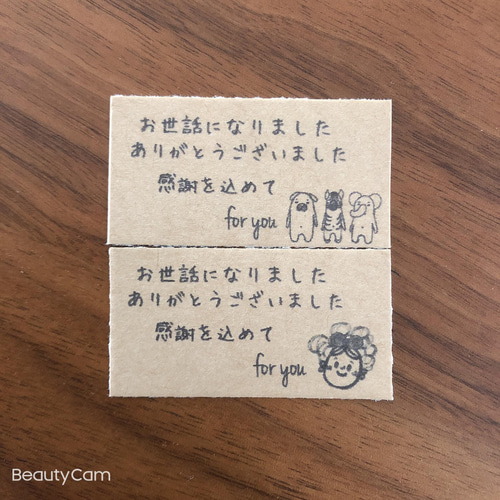 お世話になりました
ありがとうございました
感謝を込めて
for you
お世話になりました
ありがとうございました
感謝を込めて
for you
BeautyCam